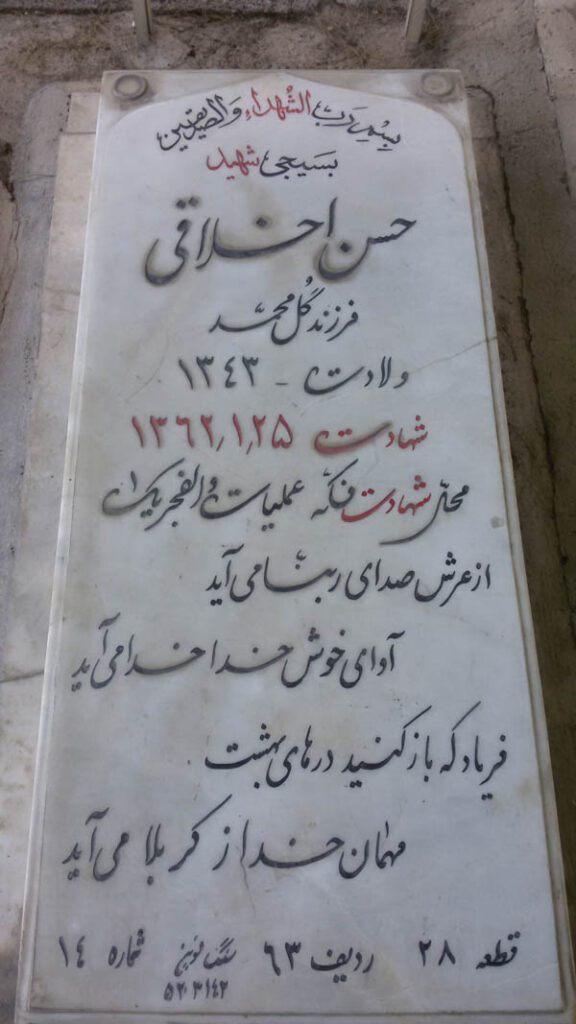 بِسْمِ رَبِّ الشُّهَداءِ وَالصِدیقین
بَسیجی شهید
حسن اخلاقی
فرزند گُل محمّد
ولادت - ۱۳٤۳
شهادت ۱۳٦۲/۱/۲۵
محل شهادت فکّه عملیات والفجر یک ۱
از عرش صدای ربنا می آید
آوای خوش خدا خدا می آید
فریاد که باز کنید درهای بهشت
مهمان خدا از کربلا می آید
قطعه ۲۸ ردیف ٦۳ سنگ نوین شماره ۱٤
۵۲۰۳۱٤۲